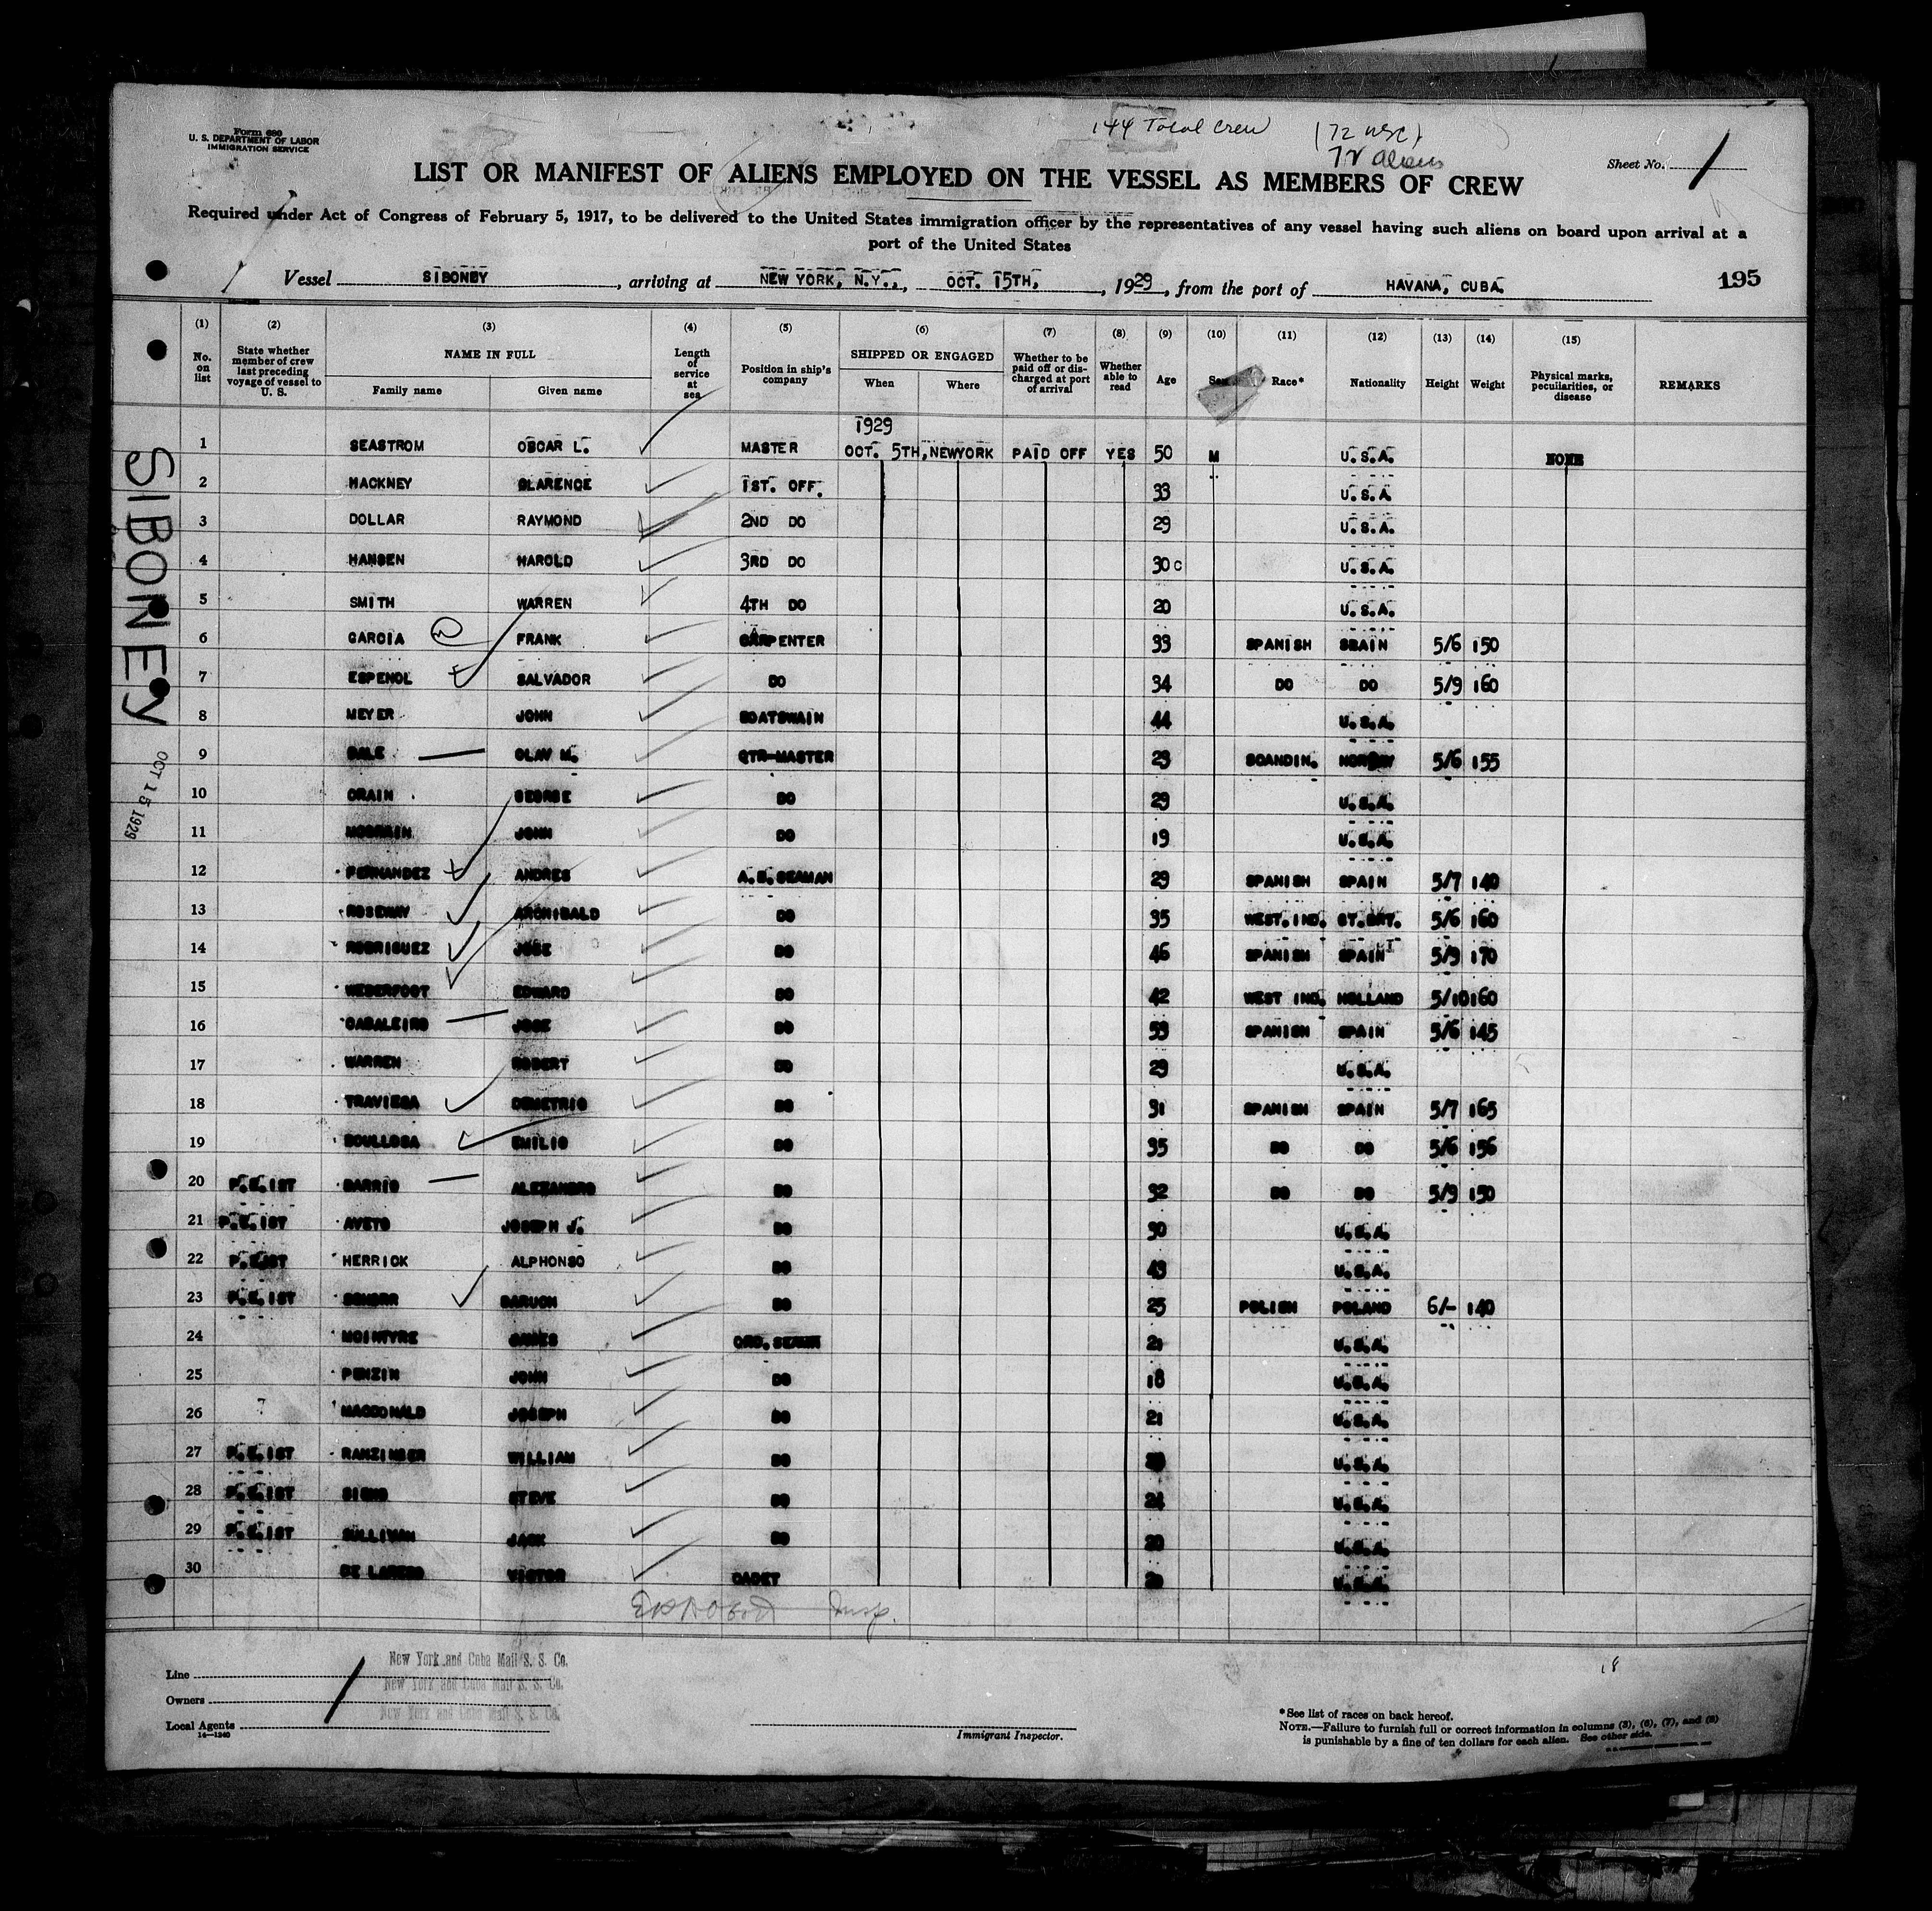 Form 680
U. S. DEPARTMENT OF LABOR
IMMIGRATION SERVICE
144 Total Crew
(72 USC)
72 aliens
Sheet No. 1
LIST OR MANIFEST OF ALIENS EMPLOYED ON THE VESSEL AS MEMBERS OF CREW
Required under Act of Congress of February 5, 1917, to be delivered to the United States immigration officer by the representatives of any vessel having such aliens on board upon arrival at a
port of the United States
Vessel SIBONEY, arriving at NEW YORK, N.Y., OCT. 15TH, 1929, from the port of HAVANA, CUBA.
195
(1) (2) (3) (4) (5) (6) (7) (8) (9) (10) (11) (12) (13) (14) (15)
No. on list State whether member of crew last preceding voyage of vessel to U. S. NAME IN FULL Family name Given name Length of service at sea Position in ship's company SHIPPED OR ENGAGED When Where Whether to be paid off or discharged at port of arrival Whether able to read Age Sex Race* Nationality Height Weight Physical marks, peculiarities, or disease REMARKS
1929
1 SEASTROM OSCAR L. MASTER OCT. 5TH, NEWYORK PAID OFF YES 50 M U.S.A. NONE
2 HACKNEY CLARENCE 1ST. OFF. 33 U.S.A
3 DOLLAR RAYMOND 2ND DO 29 U.S.A.
4 HANSEN HAROLD 3RD DO 30 C U.S.A.
5 SMITH WARREN 4TH DO 20 U.S.A.
6 GARCIA FRANK CARPENTER 33 SPANISH SPAIN 5/6 150
7 ESPENOL SALVADOR DO 34 DO DO 5/9 160
8 MEYER JOHN BOATSWAIN 44 U.S.A.
9 OLAV M. QTR-MASTER 29 SCANDIN. NORWAY 5/6 155
10 CRAIN GEORGE DO 29 U.S.A.
11 JOHN DO 19 U.S.A.
12 FERNANDEZ ANDRES A.B.SEAMAN 29 SPANISH SPAIN 5/7 140
13 ROSEWAY ARCHIBALD DO 35 WEST.IND. GT.BRT. 5/6 160
14 RODRIGUEZ JOSE DO 46 SPANISH SPAIN 5/9 170
15 WEBERFOOT EDWARD DO 42 WEST IND. HOLLAND 5/10 160
16 CABALEIRO JOSE DO 53 SPANISH SPAIN 5/6 145
17 WARREN ROBERT DO 29 U.S.A.
18 TRAVIESA DEMETRIO DO 31 SPANISH SPAIN 5/7 165
19 BOULLOSA EMILIO DO 35 DO DO 5/6 156
20 P.E.IST BARRIO ALEZANDRO DO 32 DO DO 5/9 150
21 P.E.IST AVETO JOSEPH J. DO 30 U.S.A.
22 P.E.IST HERRICK ALPHONSO DO 43 U.S.A.
23 P.E.IST BARUCH DO 25 POLISH POLAND 6/- 140
24 MCINTYRE JAMES ORD.SEAMN 21 U.S.A.
25 PENZIN JOHN DO 18 U.S.A.
26 MACDONALD JOSEPH DO 21 U.S.A.
27 P.E.IST RANZINGER WILLIAM DO U.S.A.
28 P.E.IST STEVE DO 24 U.S.A.
29 P.E.IST SULLIVAN JACK DO 20 U.S.A.
30 VICTOR CADET U.S.A.
SIBONEY
OCT 15 1929
Insp.
Line New York and Cuba Mail S. S. Co.
Owners New York and Cuba Mail S. S. Co.
Local Agents New York and Cuba Mail S. S. Co.
14—1240
Immigrant Inspector.
18
*See list of races on back hereof.
NOTE.—Failure to furnish full or correct information in columns (3), (6), (7), and (8)
is punishable by a fine of ten dollars for each alien. See other side.